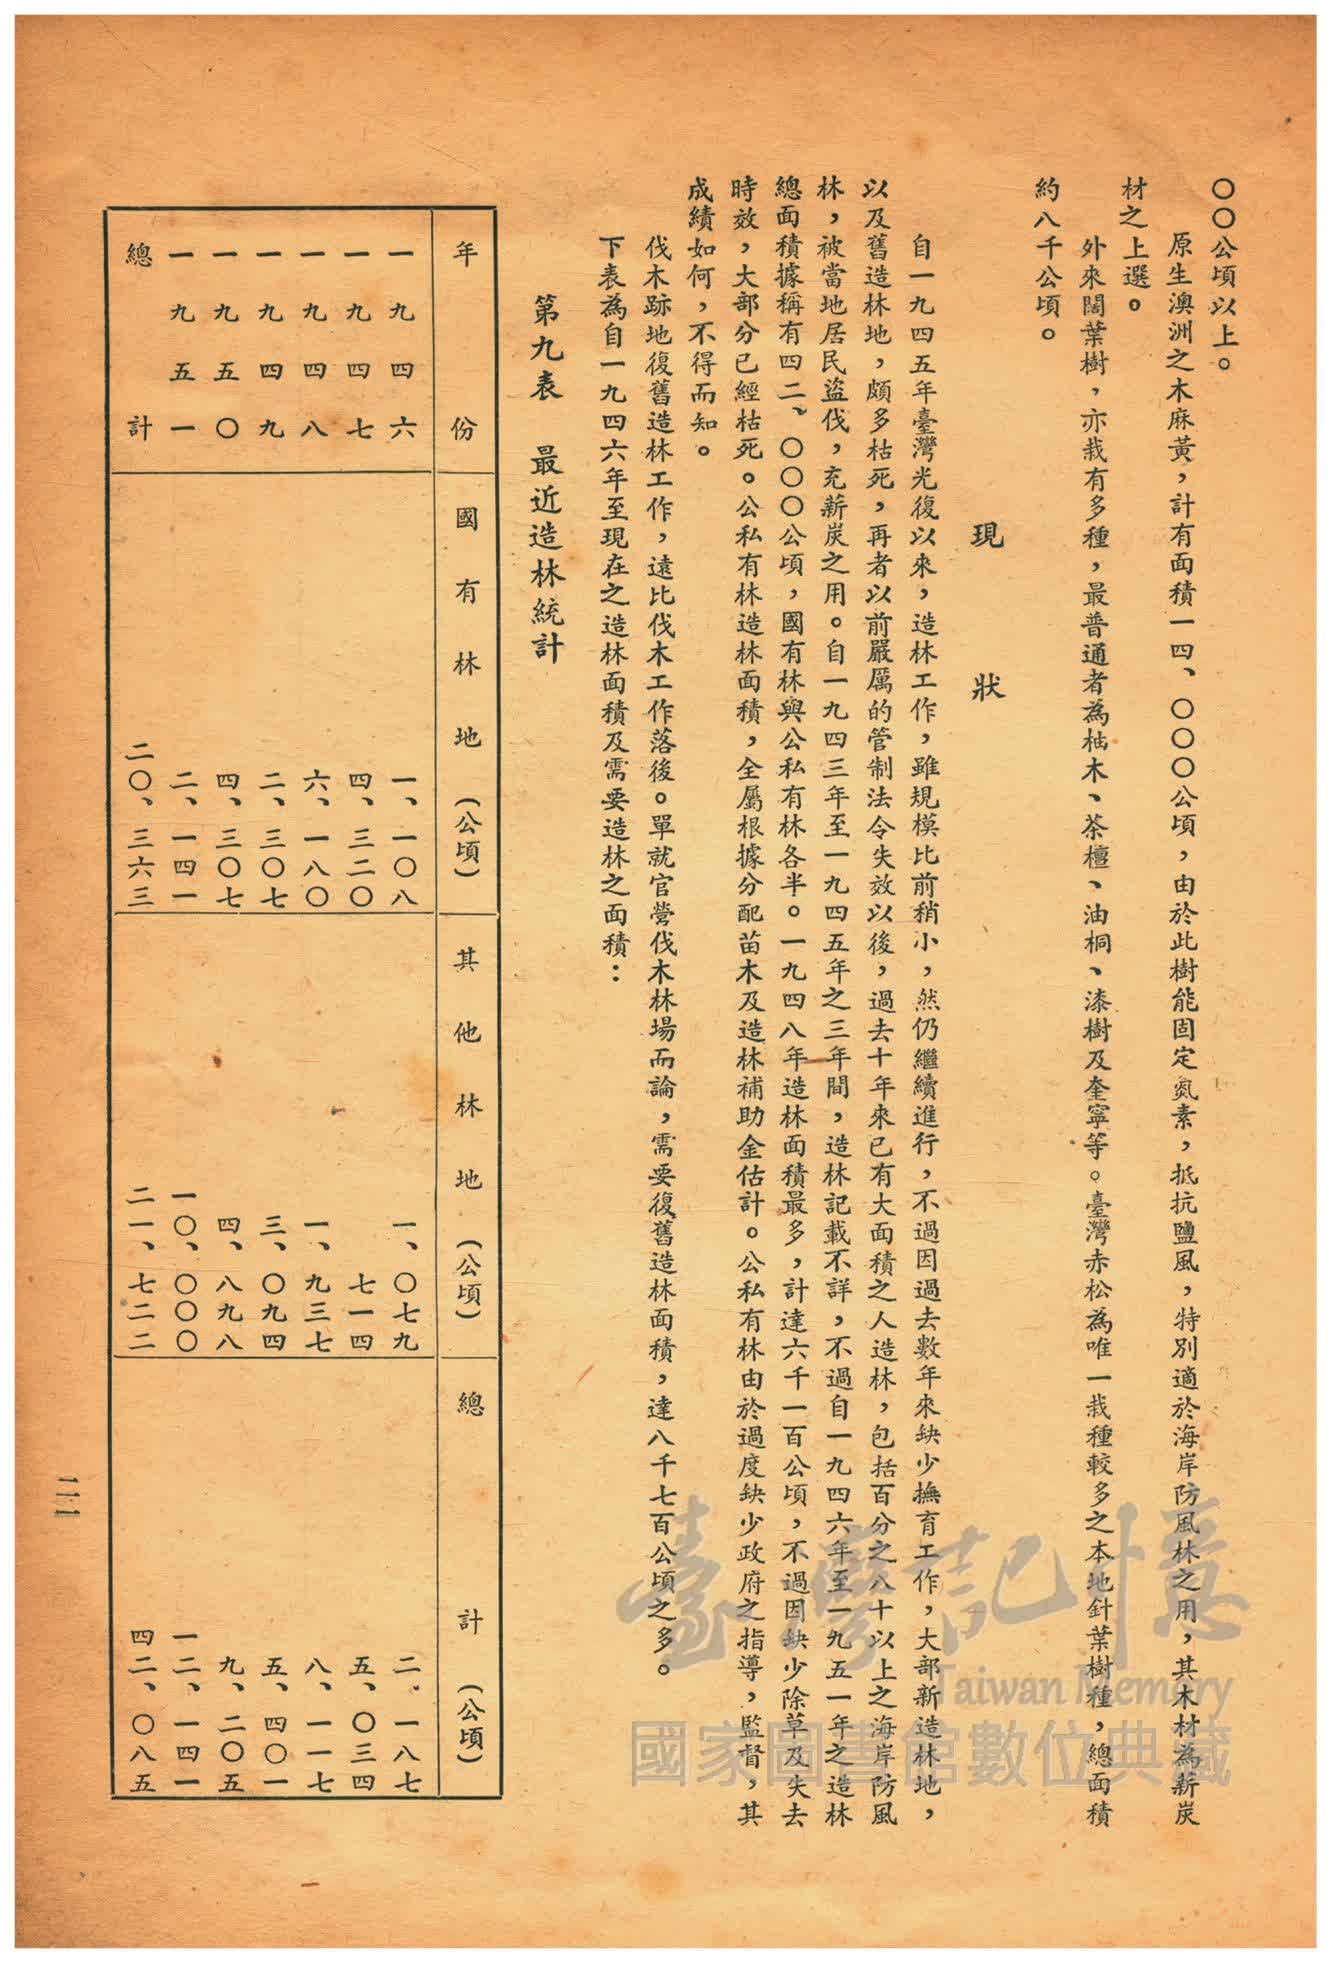 〇〇公頃以上。
原生澳洲之木麻黃，計有面積一四、〇〇〇公頃，由於此樹能固定氮素，抵抗鹽風，特別適於海岸防風林之用，其木材為薪炭
材之上選。
外來闊葉樹，亦栽有多種，最普通者為柚木、茶檀、油桐、漆樹及奎寧等。臺灣赤松為唯一栽種較多之本地針葉樹種，總面積
約八千公頃。
現　狀
自一九四五年臺灣光復以來，造林工作，雖規模比前稍小，然仍繼續進行，不過因過去數年來缺少撫育工作，大部新造林地，
以及舊造林地，頗多枯死，再者以前嚴厲的管制法令失效以後，過去十年來已有大面積之人造林，包括百分之八十以上之海岸防風
林，被當地居民盜伐，充薪炭之用。自一九四三年至一九四五年之三年間，造林記載不詳，不過自一九四六年至一九五一年之造林
總面積據稱有四二、〇〇〇公頃，國有林與公私有林各半。一九四八年造林面積最多，計達六千一百公頃，不過因缺少除草及失去
時效，大部分已經枯死。公私有林造林面積，全屬根據分配苗木及造林補助金估計。公私有林由於過度缺少政府之指導，監督，其
成績如何，不得而知。
伐木跡地復舊造林工作，遠比伐木工作落後。單就官營伐木林場而論，需要復舊造林面積，達八千七百公頃之多。
下表為自一九四六年至現在之造林面積及需要造林之面積：
第九表　最近造林統計
年份　國有林地（公頃）　其他林地（公頃）　總計（公頃）
一九四六　一、一〇八　一、〇七九　二、一八七
一九四七　四、三二〇　七一四　五、〇三四
一九四八　六、一八〇　一、九三七　八、一一七
一九四九　二、三〇七　三、〇九四　五、四〇一
一九五〇　四、三〇七　四、八九八　九、二〇五
一九五一　二、一四一　一〇、〇〇〇　一二、一四一
總計　二〇、三六三　二一、七二二　四二、〇八五
臺灣記憶
Taiwan Memory
國家圖書館數位典藏